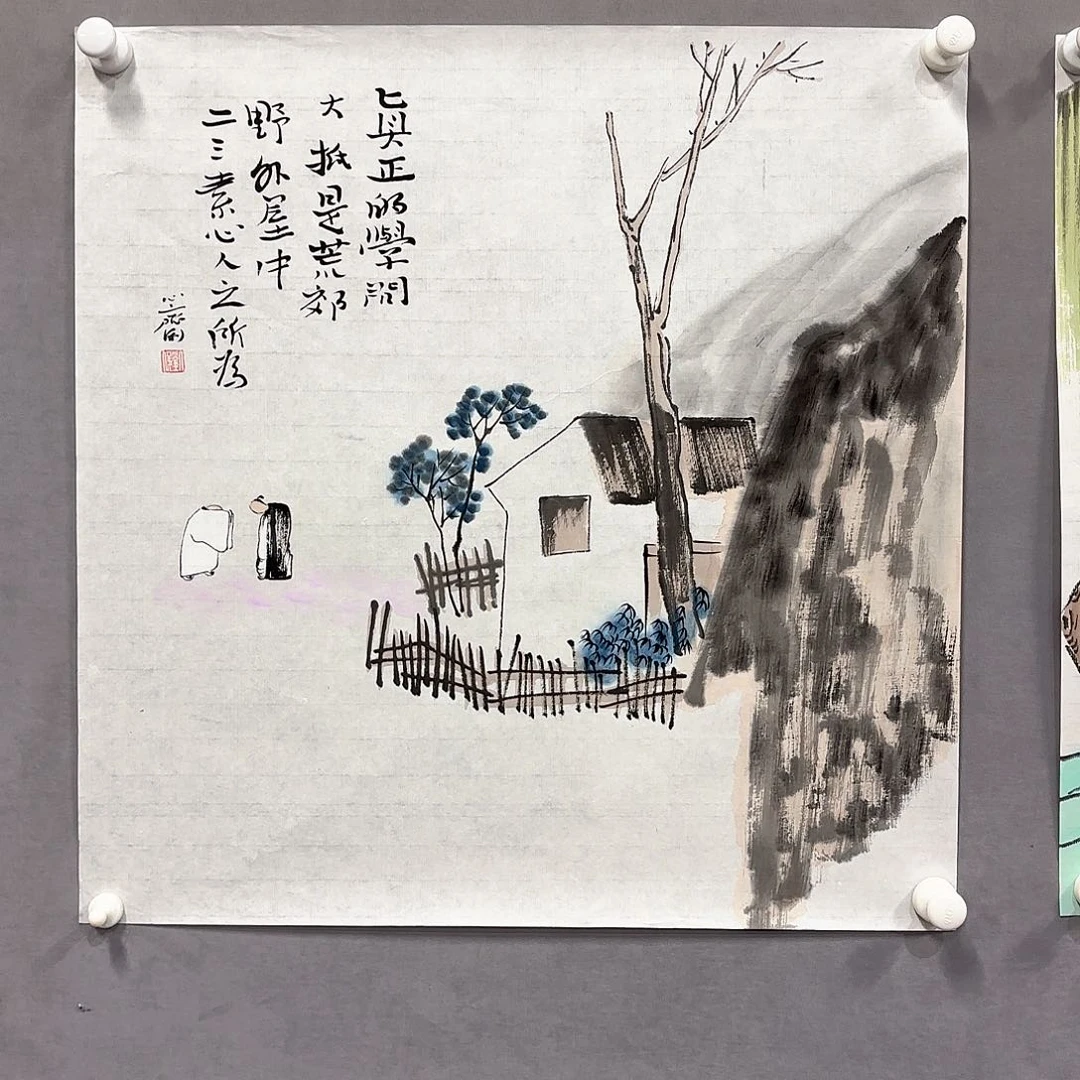 真正的學問
大抵是荒郊
野外屋中
二三素心人之所為